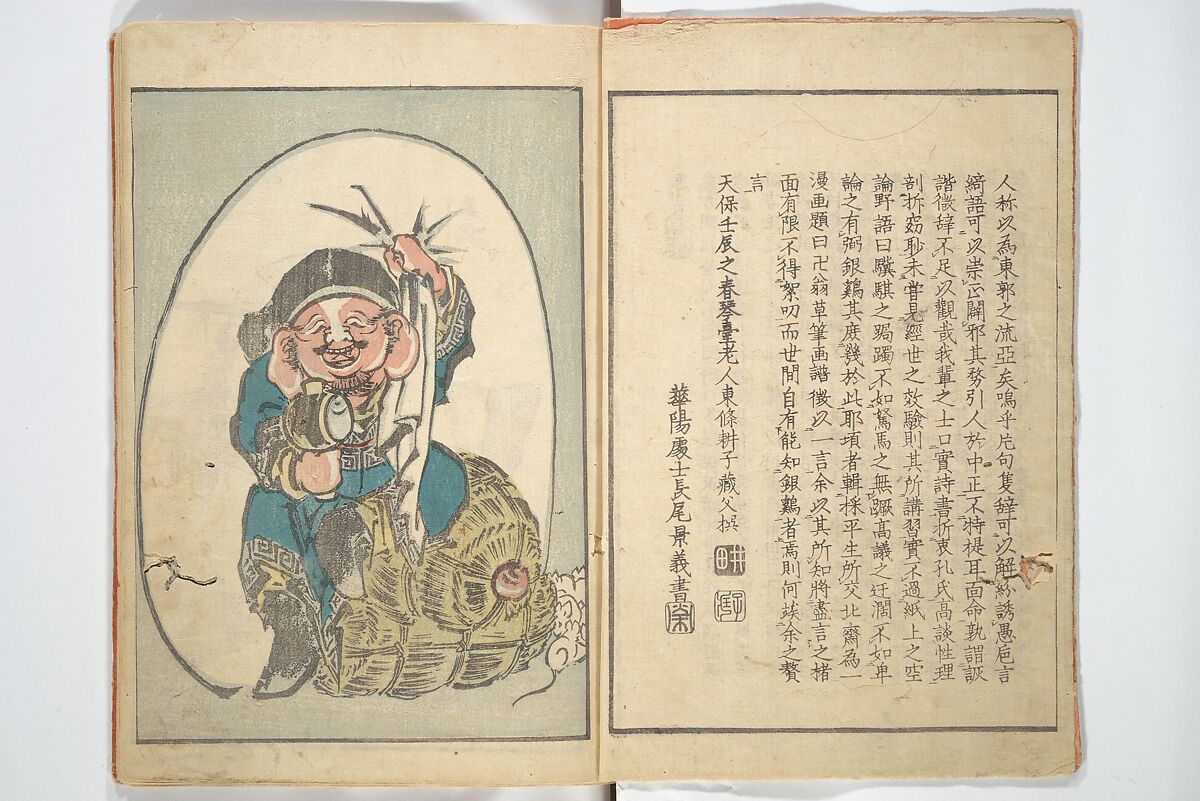 人称以為東郭之流亞矣嗚乎片句隻辞可以解紛誘愚巵言
綺語可以崇正闢邪其務引人於中正不特提耳面命孰謂詼
諧微辞不足以觀哉我輩之士口實詩書折衷孔氏高談性理
剖析窈眇未嘗見經世之效驗則其所講習實不過紙上之空
論野語曰騏驥之跼躅不如駑馬之無蹶高議之迂濶不如卑
論之有弼銀鷄其庶幾於此耶頃者輯採平生所交北齋為一
漫画題曰卍翁草筆画譜徴以一言余以其所知將盡言之楮
面有限不得絮叨而世間自有能知銀鷄者焉則何俟余之贅
言
天保壬辰之春琴臺老人東條耕子藏父撰
華陽處士長尾景義書